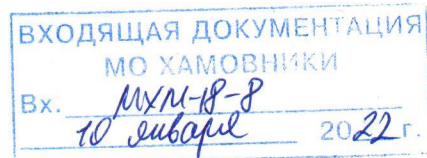 ВХОДЯЩАЯ ДОКУМЕНТАЦИЯ
МО ХАМОВНИКИ
Вх. МХМ-18-8
10 января 2022 г.